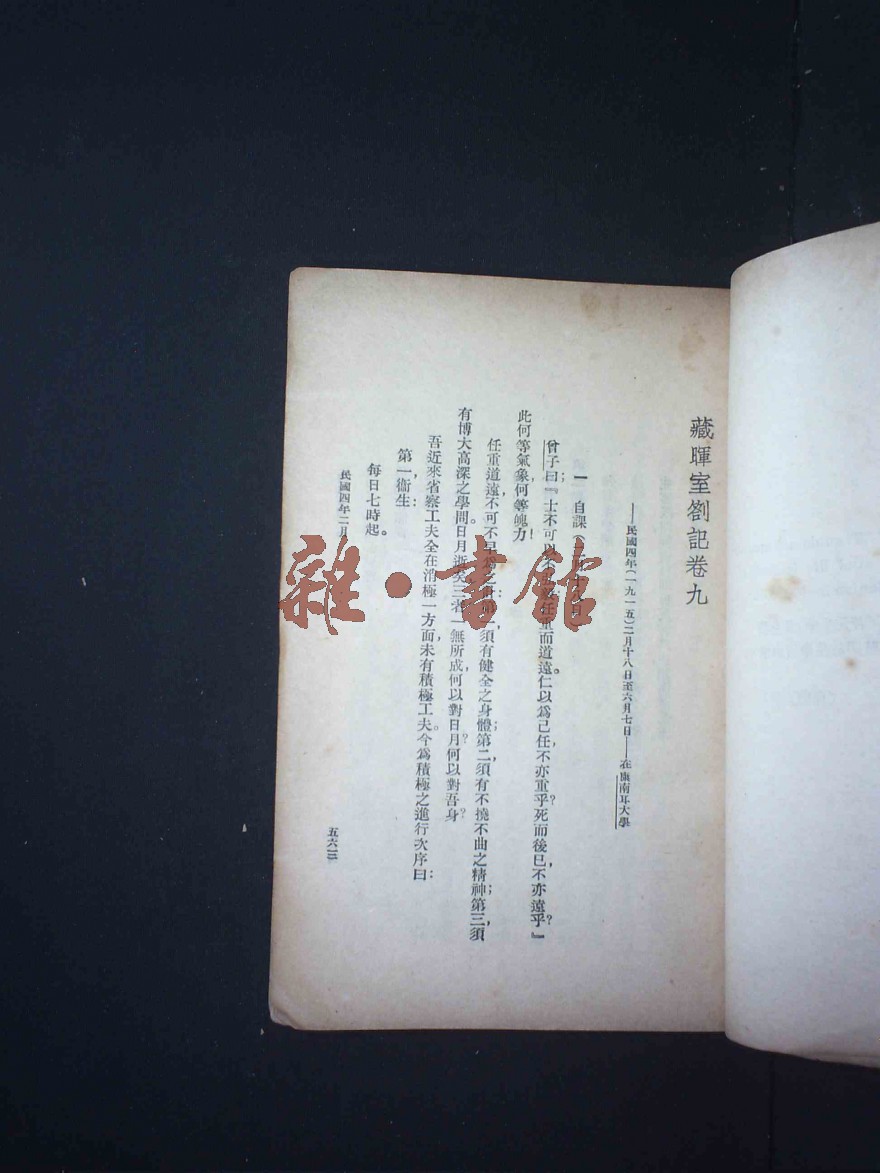 藏暉室劄記卷九
——民國四年(一九一五)二月十八日至六月七日——在康南耳大學
一 自課(二月十八日)
曾子曰:『士不可以不弘毅,任重而道遠。仁以爲己任,不亦重乎?死而後已,不亦遠乎?』
此何等氣象,何等魄力!
任重道遠,不可不早爲之計:第一,須有健全之身體;第二,須有不撓不曲之精神;第三,須
有博大高深之學問。日月逝矣,三者一無所成,何以對日月?何以對吾身?
吾近來省察工夫全在消極一方面,未有積極工夫。今爲積極之進行次序曰:
第一,衞生:
每日七時起。
民國四年二月
五六三
雜·書館